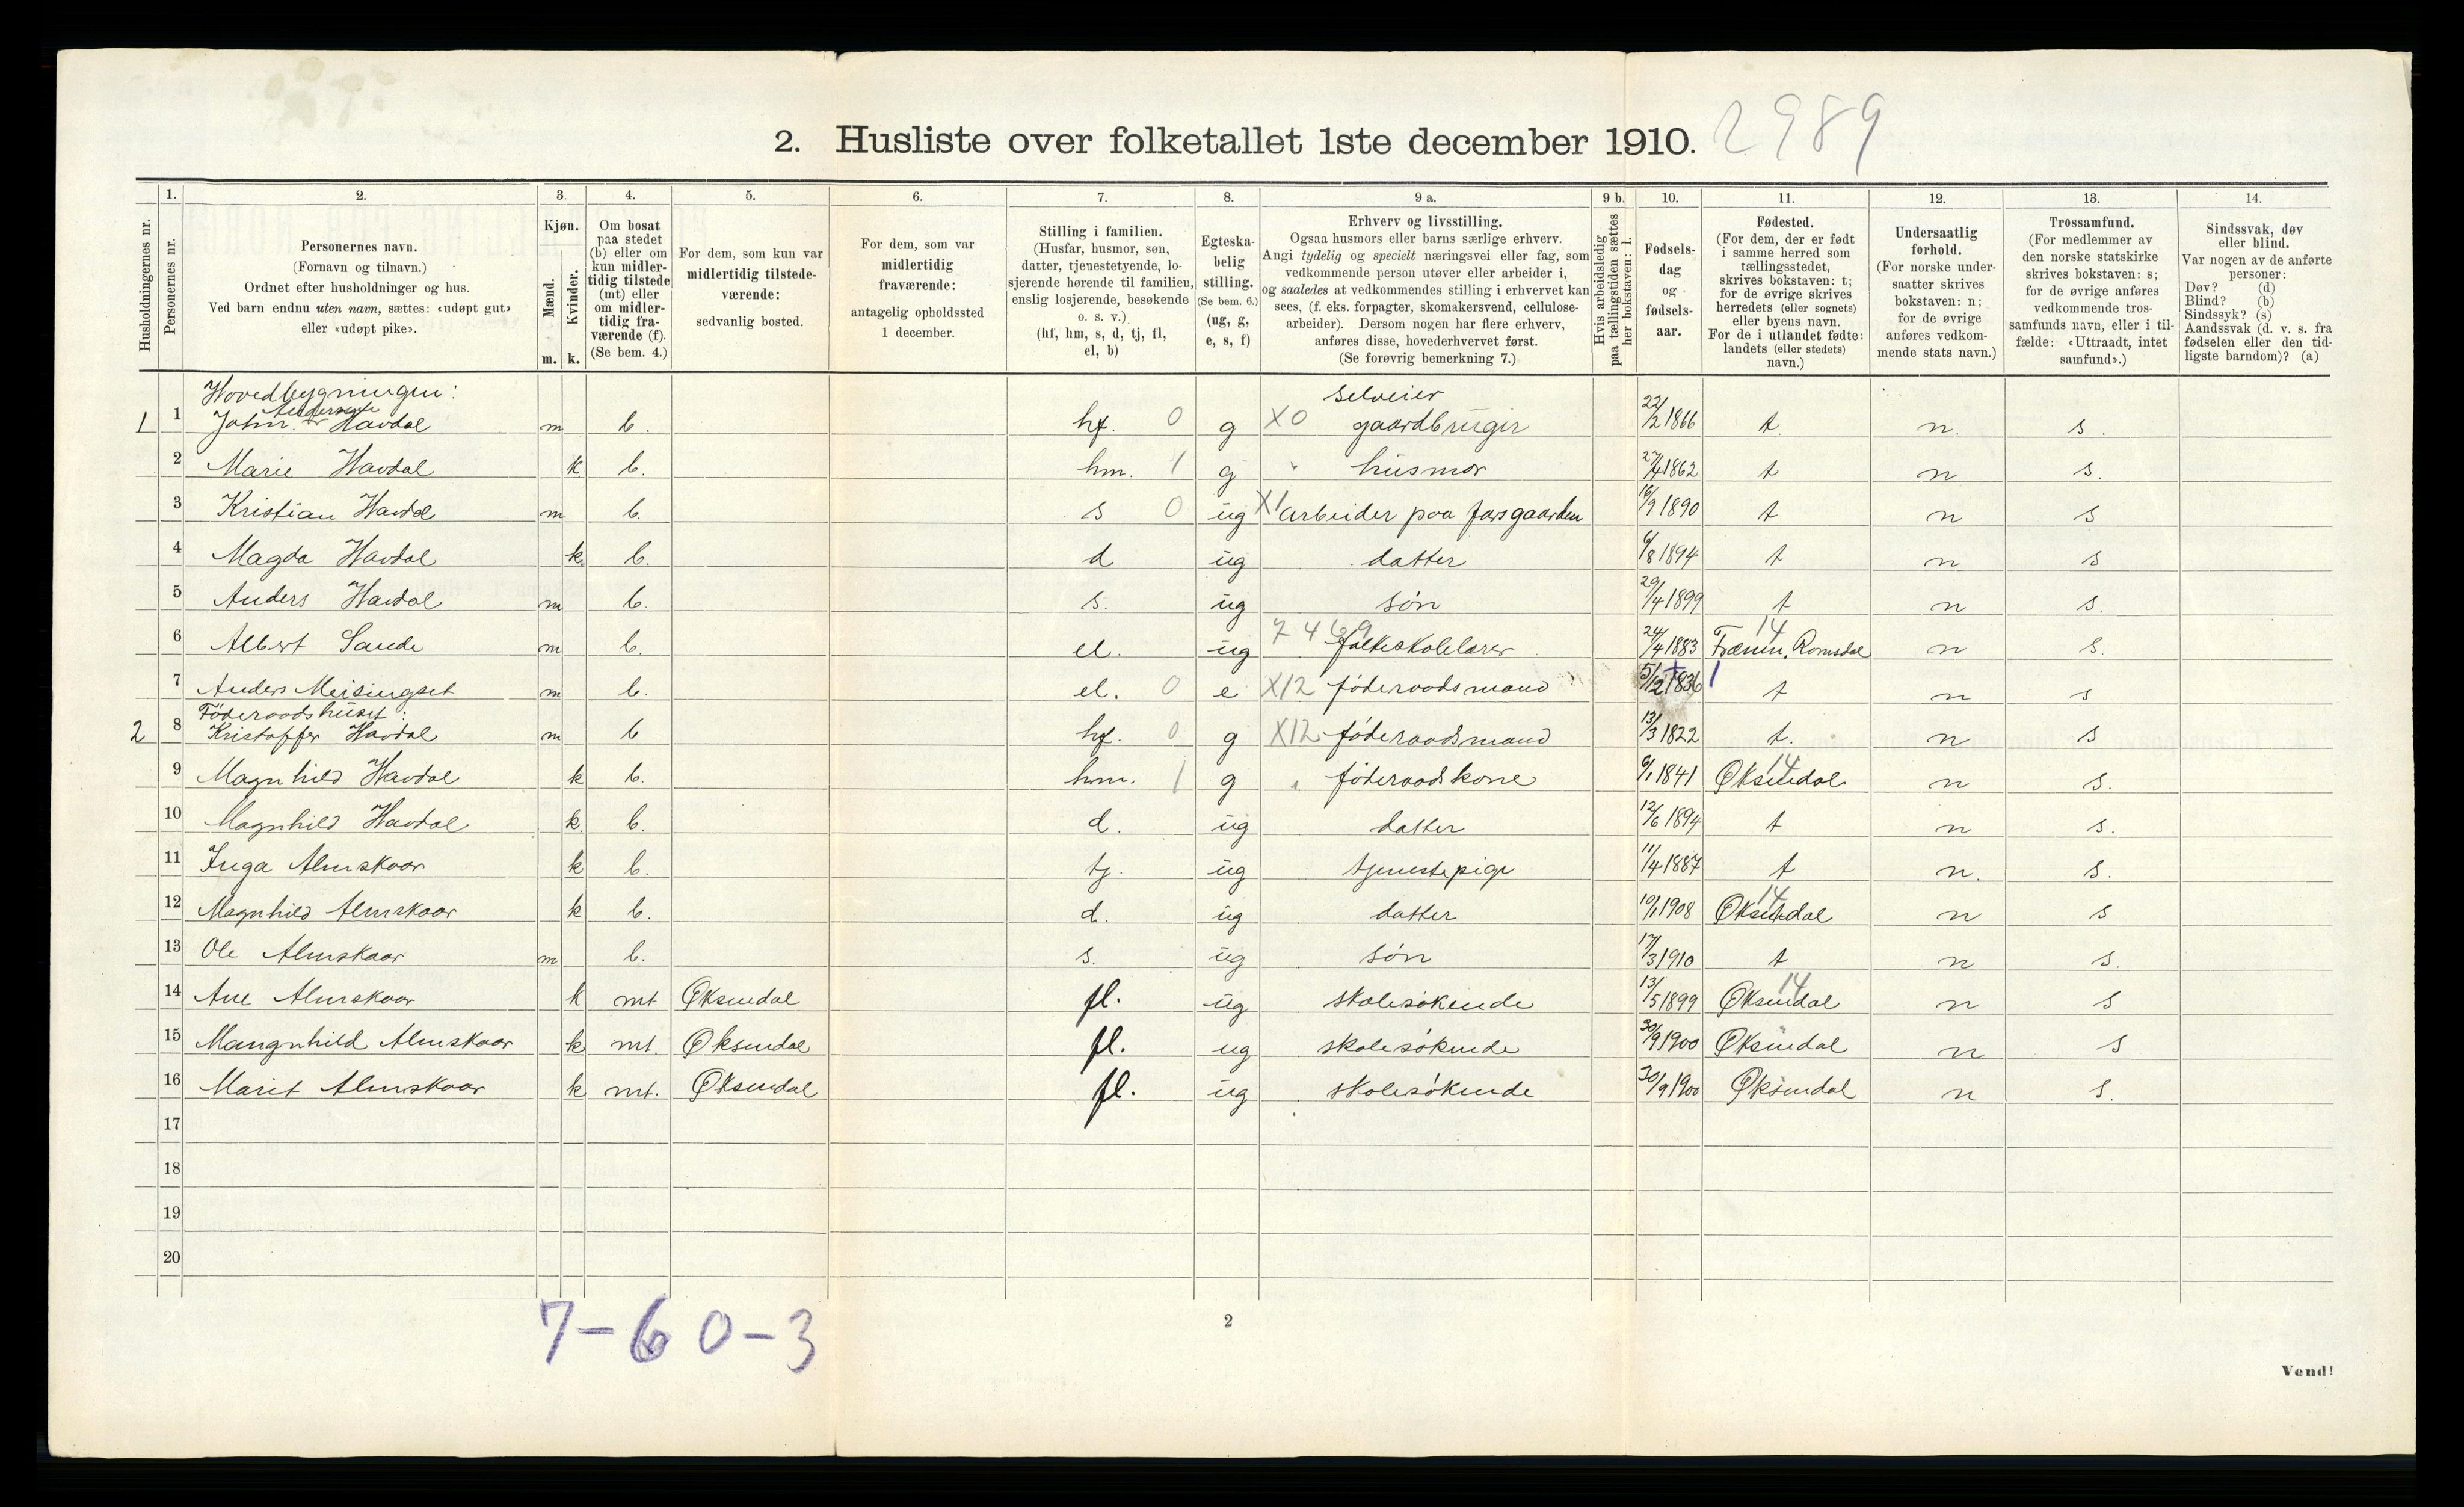 2. Husliste over folketallet 1ste december 1910. 2989
Husholdningernes nr.
1. Personernes nr.
2. Personernes navn. (Fornavn og tilnavn.) Ordnet efter husholdninger og hus. Ved barn endnu uten navn, sættes: «udøpt gut» eller «udøpt pike».
3. Kjøn. Mænd. m. Kvinder. k.
4. Om bosat paa stedet (b) eller om kun midlertidig tilstede (mt) eller om midlertidig fraværende (f). (Se bem. 4.)
5. For dem, som kun var midlertidig tilstedeværende: sedvanlig bosted.
6. For dem, som var midlertidig fraværende: antagelig opholdssted 1 december.
7. Stilling i familien. (Husfar, husmor, søn, datter, tjenestetyende, losjerende hørende til familien, enslig losjerende, besøkende o. s. v.) (hf, hm, s, d, tj, fl, el, b)
8. Egteskabelig stilling. (Se bem. 6.) (ug, g, e, s, f)
9 a. Erhverv og livsstilling. Ogsaa husmors eller barns særlige erhverv. Angi tydelig og specielt næringsvei eller fag, som vedkommende person utøver eller arbeider i, og saaledes at vedkommendes stilling i erhvervet kan sees, (f. eks. forpagter, skomakersvend, cellulosearbeider). Dersom nogen har flere erhverv, anføres disse, hovederhvervet først. (Se forøvrig bemerkning 7.)
9 b. Hvis arbeidsledig paa tællingstiden sættes her bokstaven: l.
10. Fødselsdag og fødselsaar.
11. Fødested. (For dem, der er født i samme herred som tællingsstedet, skrives bokstaven: t; for de øvrige skrives herredets (eller sognets) eller byens navn. For de i utlandet fødte: landets (eller stedets) navn.)
12. Undersaatlig forhold. (For norske undersaatter skrives bokstaven: n; for de øvrige anføres vedkommende stats navn.)
13. Trossamfund. (For medlemmer av den norske statskirke skrives bokstaven: s; for de øvrige anføres vedkommende trossamfunds navn, eller i tilfælde: «Uttraadt, intet samfund».)
14. Sindssvak, døv eller blind. Var nogen av de anførte personer: Døv? (d) Blind? (b) Sindssyk? (s) Aandssvak (d. v. s. fra fødselen eller den tidligste barndom)? (a)
Hovedbygningen:
1 1 John Anderssen Havdal m b. hf. 0 g X0 selveier gaardbruger 22/2 1866 t n. s.
2 Marie Havdal k b. hm. 1 g " husmor 27/4 1862 t n s.
3 Kristian Havdal m b. s 0 ug X1 arbeider paa farsgaarden 16/9 1890 t n s
4 Magda Havdal k b. d ug datter 6/8 1894 t n s
5 Anders Havdal m b. s. ug søn 29/4 1899 t n s.
6 Albert Sande m b. el. ug 7469 folkeskolelærer 24/4 1883 14 Frænen, Romsdal n s.
7 Anders Meisingset m b. el. 0 e X12 føderaadsmand 5/12 1836 t n s
Føderaadshuset:
2 8 Kristoffer Havdal m b hf. 0 g X12 føderaadsmand 13/3 1822 t. n s
9 Magnhild Havdal k b. hm. 1 g " føderaadskone 6/1 1841 14 Øksendal n s.
10 Magnhild Havdal k b. d. ug datter 12/6 1894 t n s.
11 Inga Almskaar k b. tj. ug tjenestepige 11/4 1887 t n. s.
12 Magnhild Almskaar k b. d. ug datter 10/1 1908 14 Øksendal n s
13 Ole Almskaar m b. s. ug søn 17/3 1910 t n s.
14 Ane Almskaar k mt Øksendal fl. ug skolesøkende 13/5 1899 14 Øksendal n s
15 Mangnhild Almskaar k mt. Øksendal fl. ug skolesøkende 30/9 1900 Øksendal n s
16 Marit Almskaar k mt. Øksendal fl. ug skolesøkende 30/9 1900 Øksendal n s.
17
18
19
20
7-60-3
2
Vend!